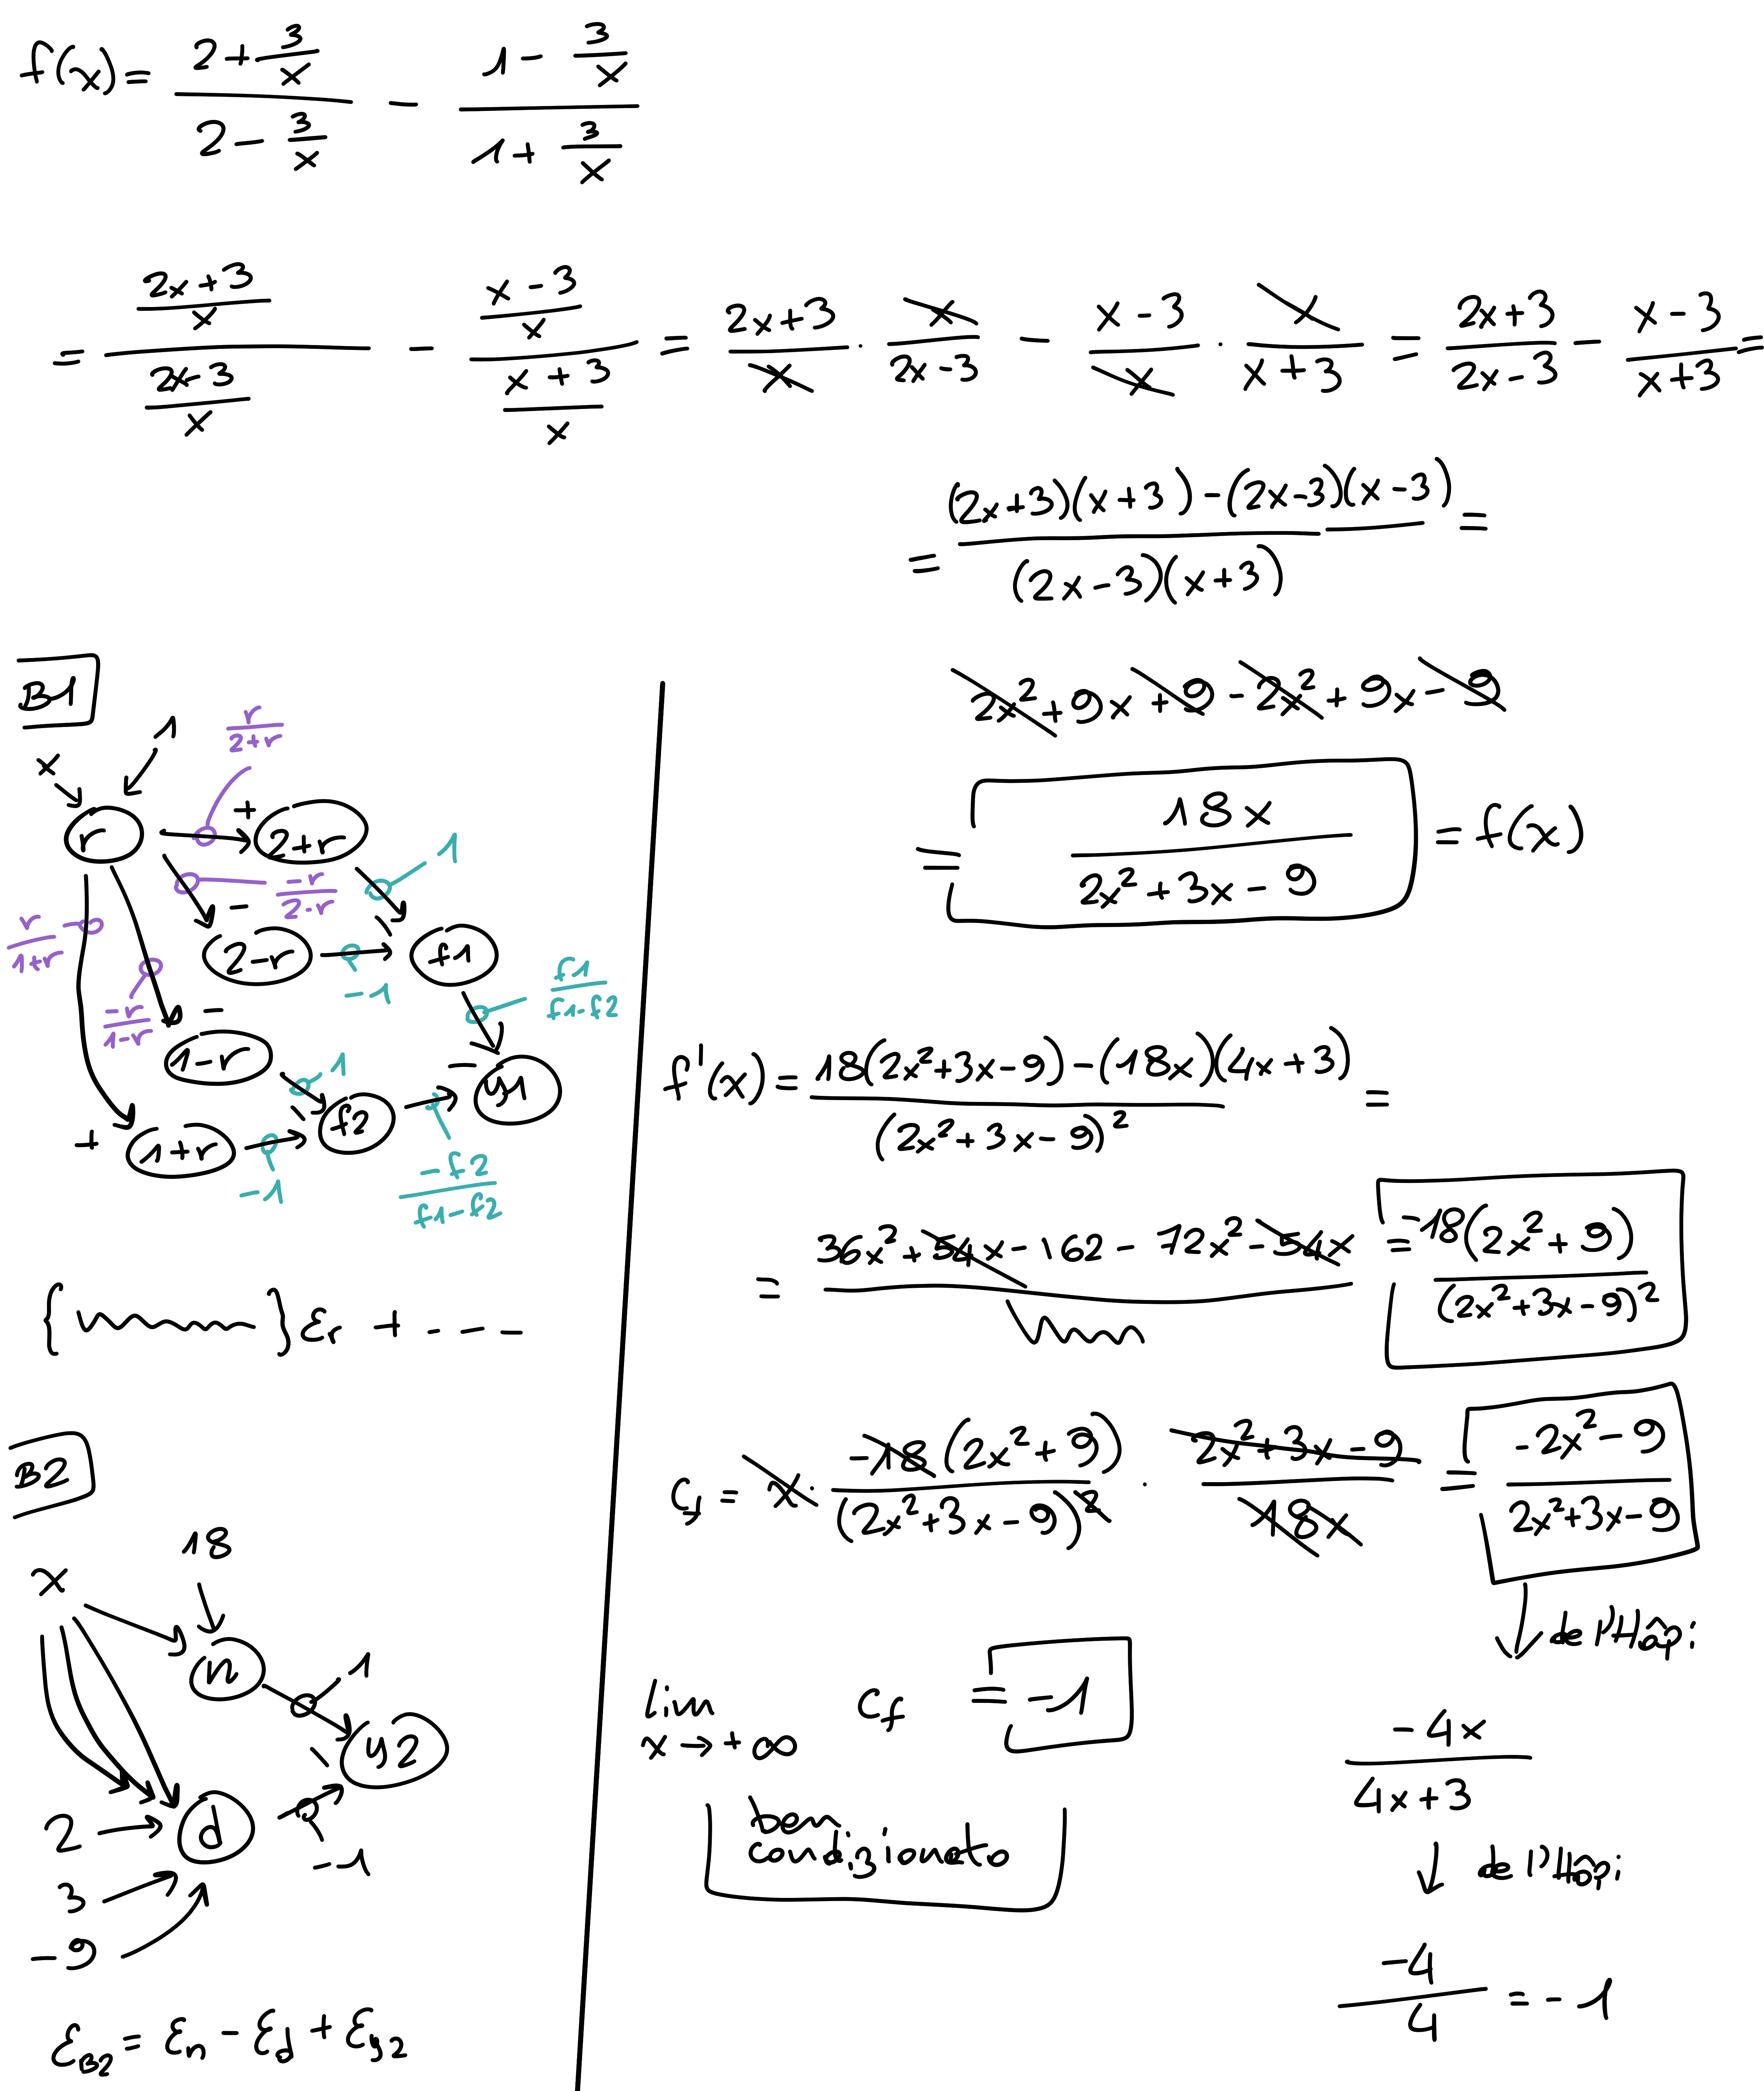 f(x) = (2 + 3/x)/(2 - 3/x) - (1 - 3/x)/(1 + 3/x)
= ((2x + 3)/x)/((2x - 3)/x) - ((x - 3)/x)/((x + 3)/x) = (2x + 3)/x · x/(2x - 3) - (x - 3)/x · x/(x + 3) = (2x + 3)/(2x - 3) - (x - 3)/(x + 3) =
= ((2x + 3)(x + 3) - (2x - 3)(x - 3))/((2x - 3)(x + 3)) =
2x² + 9x + 9 - 2x² + 9x - 9
= 18x/(2x² + 3x - 9) = f(x)
B1
x
1
r/(2+r)
r
+
2+r
1
-r/(2-r)
-
r/(1+r)
2-r
-1
f1
f1/(f1-f2)
-r/(1-r)
-
1-r
1
\
/
f2
-
y1
+
1+r
-1
-f2/(f1-f2)
{ } εr + - - - -
B2
x
18
n
1
\
y2
2
d
/
-1
3
-9
εB2 = εn - εd + εy2
f'(x) = (18(2x² + 3x - 9) - (18x)(4x + 3))/(2x² + 3x - 9)² =
= 36x² + 54x - 162 - 72x² - 54x = -18(2x² + 9)/(2x² + 3x - 9)²
cf = x · -18(2x² + 9)/(2x² + 3x - 9)² · (2x² + 3x - 9)/18x = (-2x² - 9)/(2x² + 3x - 9)
de l'Hôpi
lim x→+∞ cf = -1
ben
condizionato
-4x/(4x + 3)
de l'Hôpi
-4/4 = -1